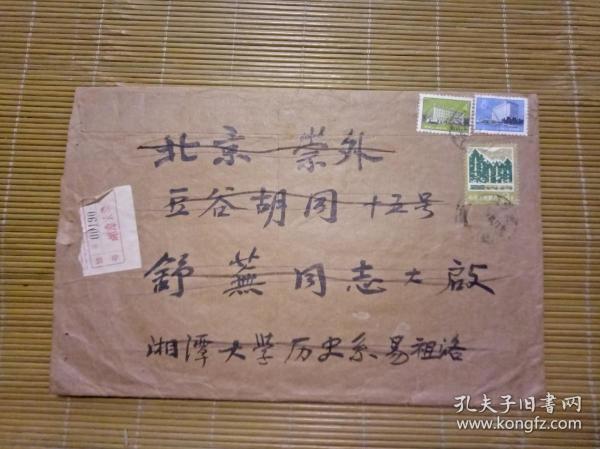 北京 崇外
豆谷胡同十五号
舒蕪同志大啟
湘潭大學历史系易祖洛
00190
孔夫子旧书网
www.kongfz.com